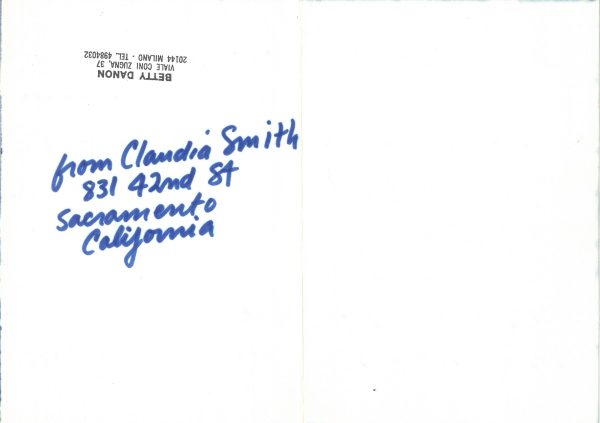 BETTY DANON
VIALE CONI ZUGNA, 37
20144 MILANO - TEL. 4984032
from Claudia Smith
831 42nd St
Sacramento
California